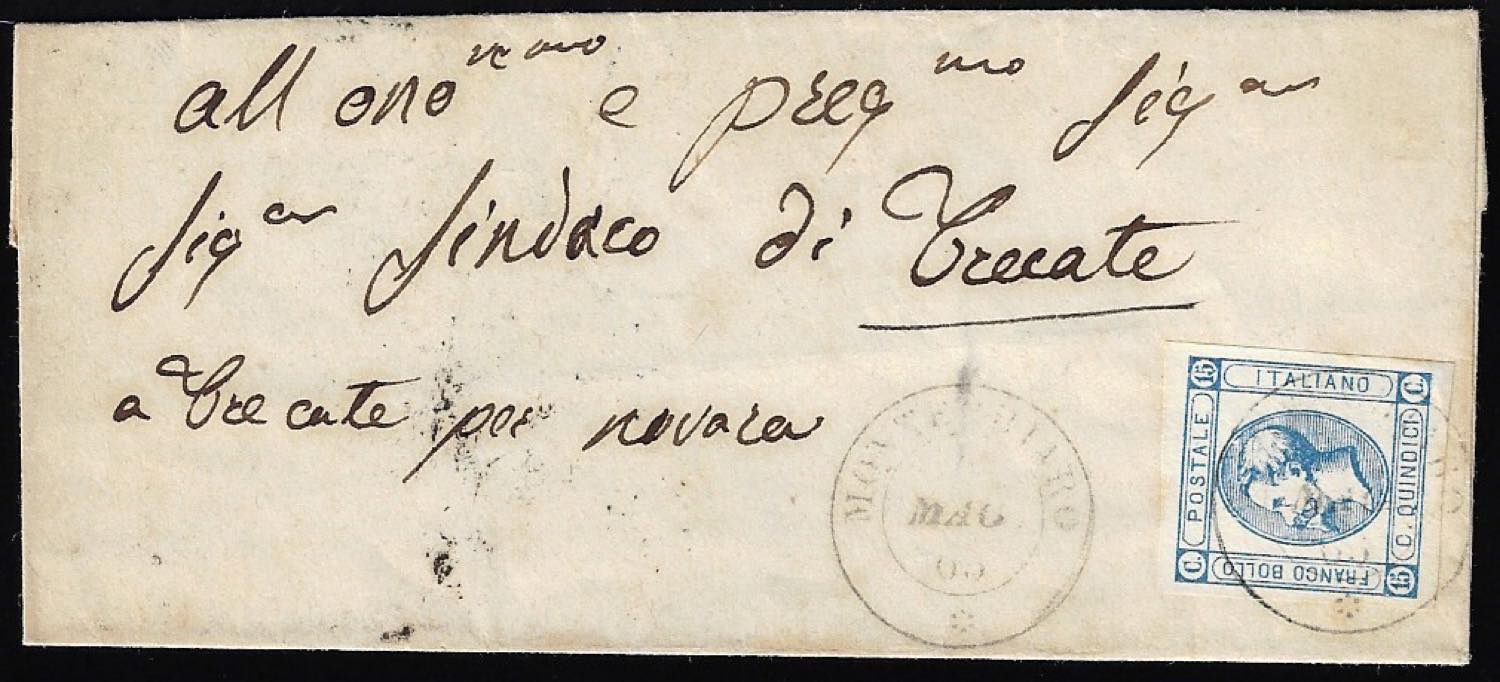 all ono revmo e preg mo Sig or
Sig or Sindaco di Trecate
a Trecate per novara
MONTECHIARO
MAG
15 ITALIANO C.
POSTALE
C. QUINDICI
C. FRANCO BOLLO 15